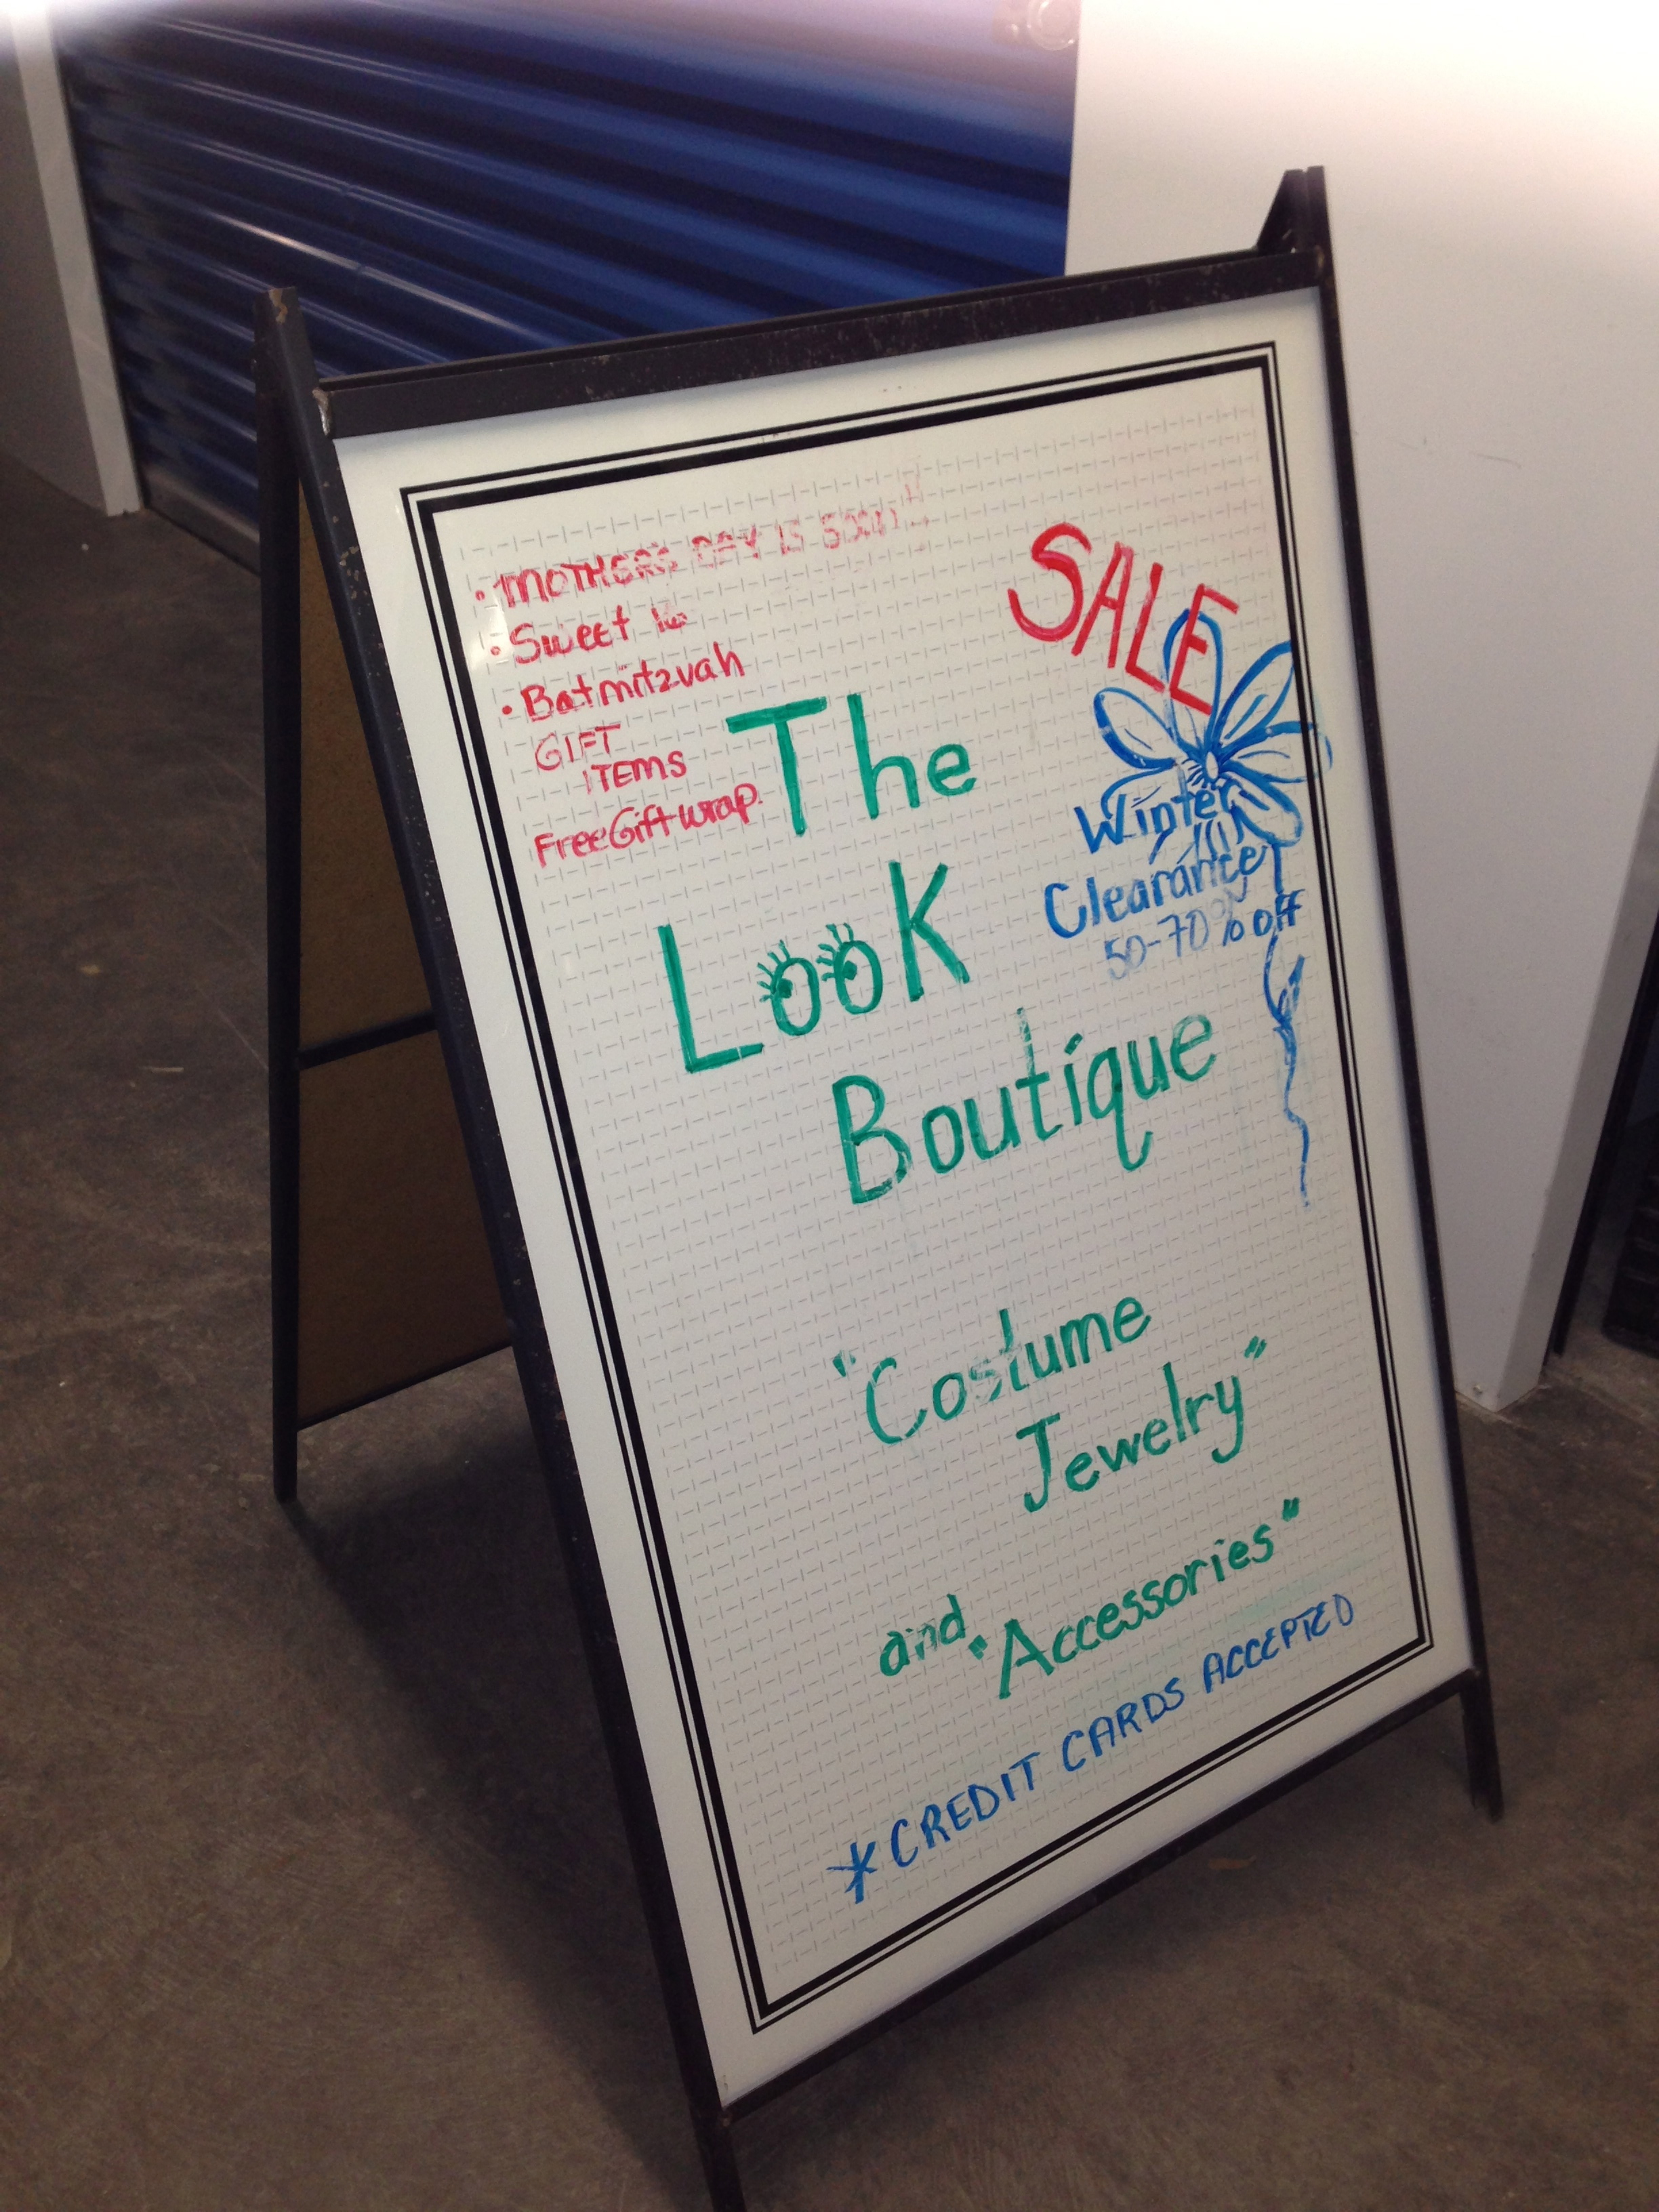 • MOTHERS DAY IS SOON!!
• Sweet 16
• Batmitzvah
GIFT
ITEMS
Free Gift wrap.
SALE
Winter
Clearance
50-70% off
The
Look
Boutique
"Costume
Jewelry"
and "Accessories"
*CREDIT CARDS ACCEPTED